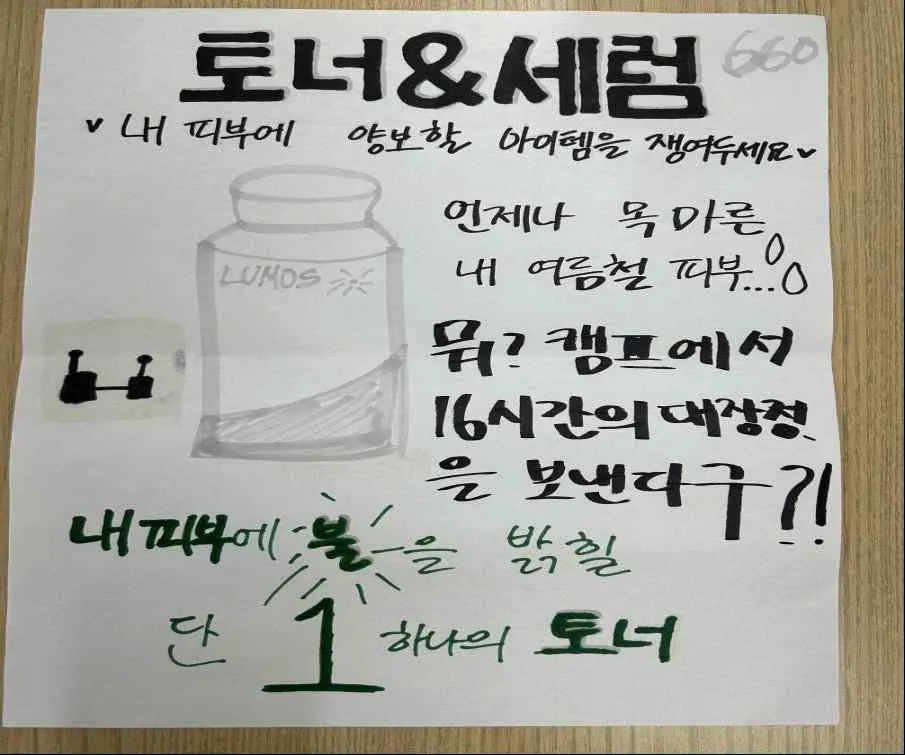 토너&세럼
660
내 피부에 양보할 아이템을 쟁여두세요
언제나 목마른
내 여름철 피부...
LUMOS
뭐? 캠프에서
16시간의 대장정
을 보낸다구?!
내 피부에 불을 밝힐
단 1 하나의 토너